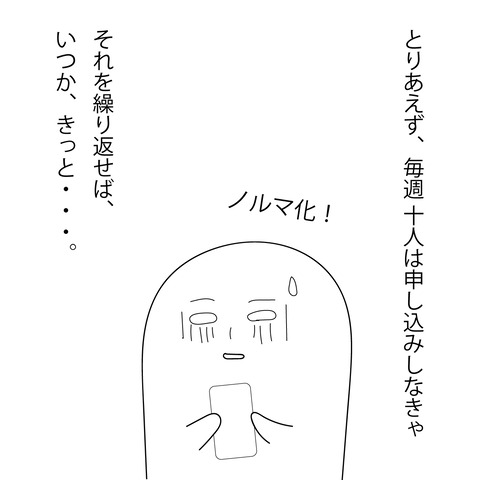 とりあえず、毎週十人は申し込みしなきゃ
ノルマ化！
それを繰り返せば、
いつか、きっと・・・。